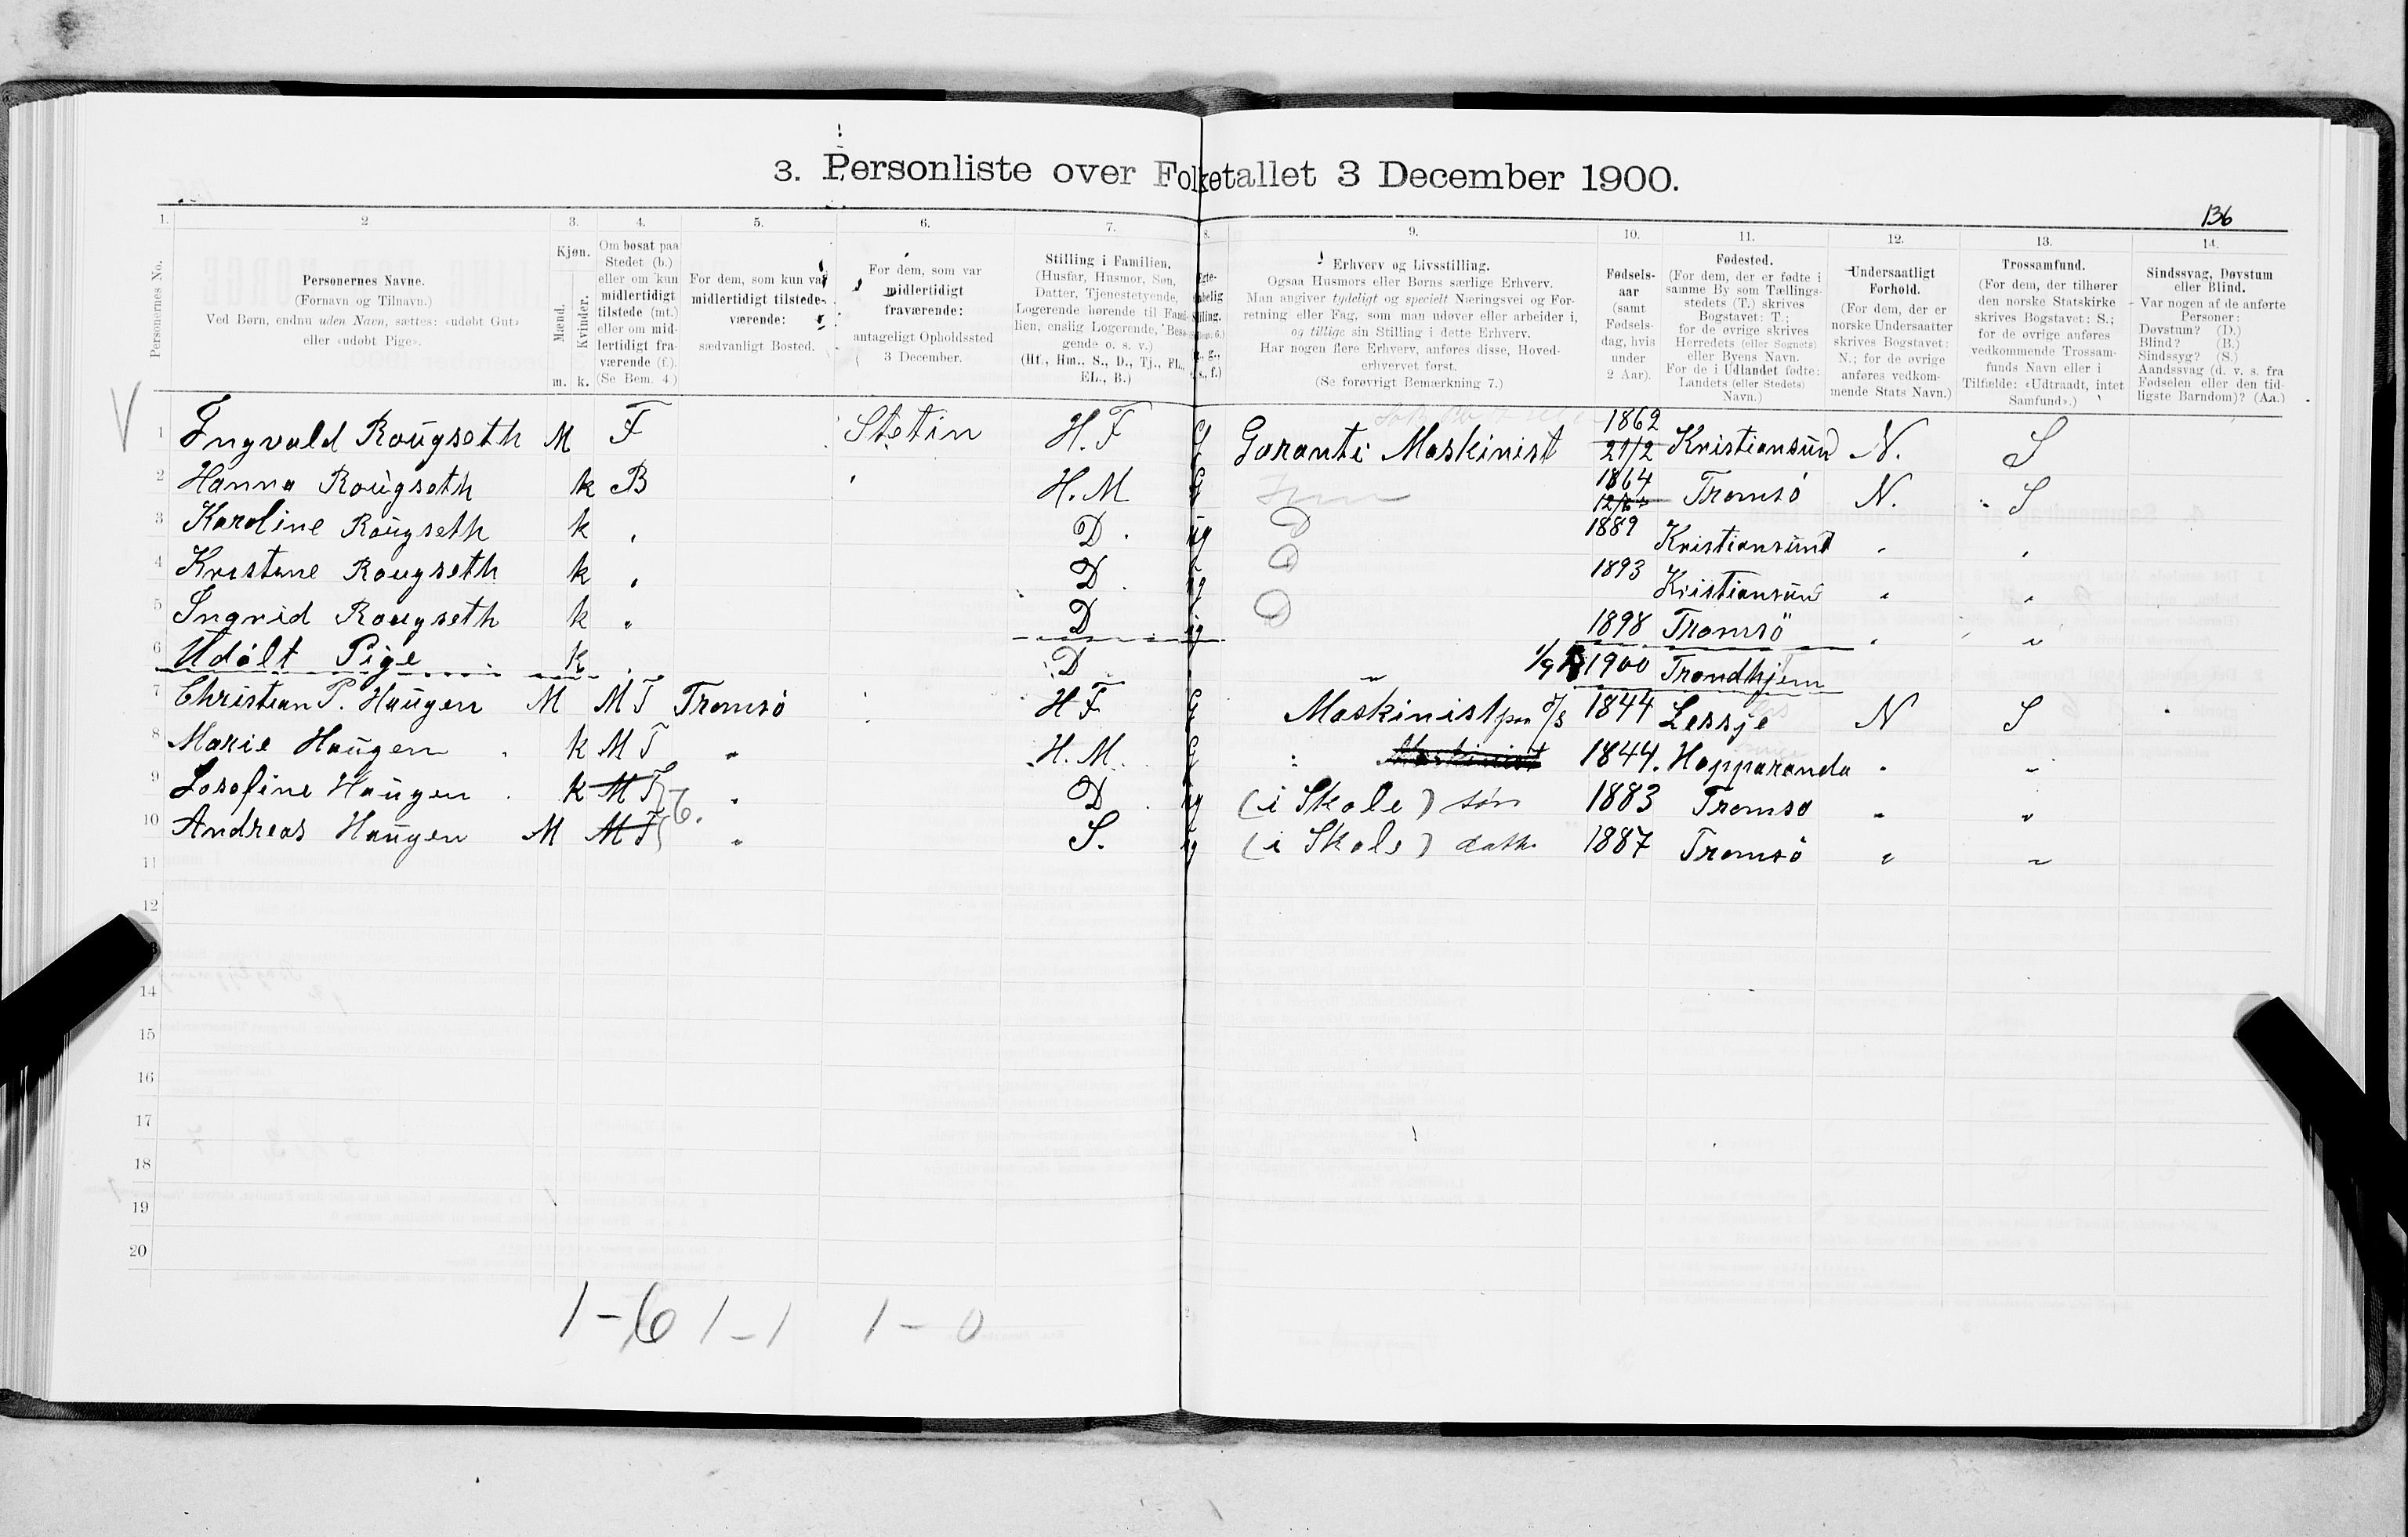 3. Personliste over Folketallet 3 December 1900.
136
1. 2 3. 4. 5. 6. 7. 8. 9. 10. 11. 12. 13. 14.
Personernes No.
Personernes Navne.
(Fornavn og Tilnavn.)
Ved Børn, endnu uden Navn, sættes: «udøbt Gut»
eller «udøbt Pige».
Kjøn.
Mænd. Kvinder.
m. k.
Om bosat paa
Stedet (b.)
eller om kun
midlertidigt
tilstede (mt.)
eller om mid-
lertidigt fra-
værende (f.).
(Se Bem. 4.)
For dem, som kun var
midlertidigt tilstede-
værende:
sædvanligt Bosted.
For dem, som var
midlertidigt
fraværende:
antageligt Opholdssted
3 December.
Stilling i Familien.
(Husfar, Husmor, Søn,
Datter, Tjenestetyende,
Logerende hørende til Fami-
lien, enslig Logerende, Besø-
gende o. s. v.)
(Hf., Hm., S., D., Tj., FL.,
EL., B.)
Erhverv og Livsstilling.
Ogsaa Husmors eller Børns særlige Erhverv.
Man angiver tydeligt og specielt Næringsvei og For-
retning eller Fag, som man udøver eller arbeider i,
og tillige sin Stilling i dette Erhverv.
Har nogen flere Erhverv, anføres disse, Hoved-
erhvervet først.
(Se forøvrigt Bemærkning 7.)
Fødsels-
aar
(samt
Fødsels-
dag, hvis
under
2 Aar).
Fødested.
(For dem, der er fødte i
samme By som Tællings-
stedets (T.) skrives
Bogstavet: T.;
for de øvrige skrives
Herredets (eller Sognets)
eller Byens Navn.
For de i Udlandet fødte:
Landets (eller Stedets)
Navn.)
Undersaatligt
Forhold.
(For dem, der er
norske Undersaatter
skrives Bogstavet:
N.; for de øvrige
anføres vedkom-
mende Stats Navn.)
Trossamfund.
(For dem, der tilhører
den norske Statskirke
skrives Bogstavet: S.;
for de øvrige anføres
vedkommende Trossam-
funds Navn eller i
Tilfælde: «Udtraadt, intet
Samfund».)
Sindssvag, Døvstum
eller Blind.
Var nogen af de anførte
Personer:
Døvstum? (D.)
Blind? (B.)
Sindssyg? (S.)
Aandssvag (d. v. s. fra
Fødselen eller den tid-
ligste Barndom)? (Aa.)
V
1 Ingvald Rougseth M F Stetin H.F G Garanti Maskinist 1862 21/2 Kristiansund N. S
2 Hanna Rougseth k B H.M G 1864 Tromsö N. S
3 Karoline Rougseth k " D. ug D 1889 Kristiansund " "
4 Kristine Rougseth k " D. ug D 1893 Kristiansund " "
5 Ingrid Rougseth k " D ug D 1898 Tromsö " "
6 Udólt Pige k. " D " 1/9 1900 Trondhjem
7 Christian P. Haugen M MT Tromsö HF G Maskinist paa D/S 1844 Lessje N S
8 Marie Haugen k MT " H.M. G Maskinist 1844. Happaranda " "
9 Josefine Haugen k MT " D. ug (i Skole) søn 1883 Tromsø " "
10 Andreas Haugen M MT " S. ug (i Skole) datt. 1887 Tromsö " "
11
12
13
14
15
16
17
18
19
20
1-6 1-1 1-0